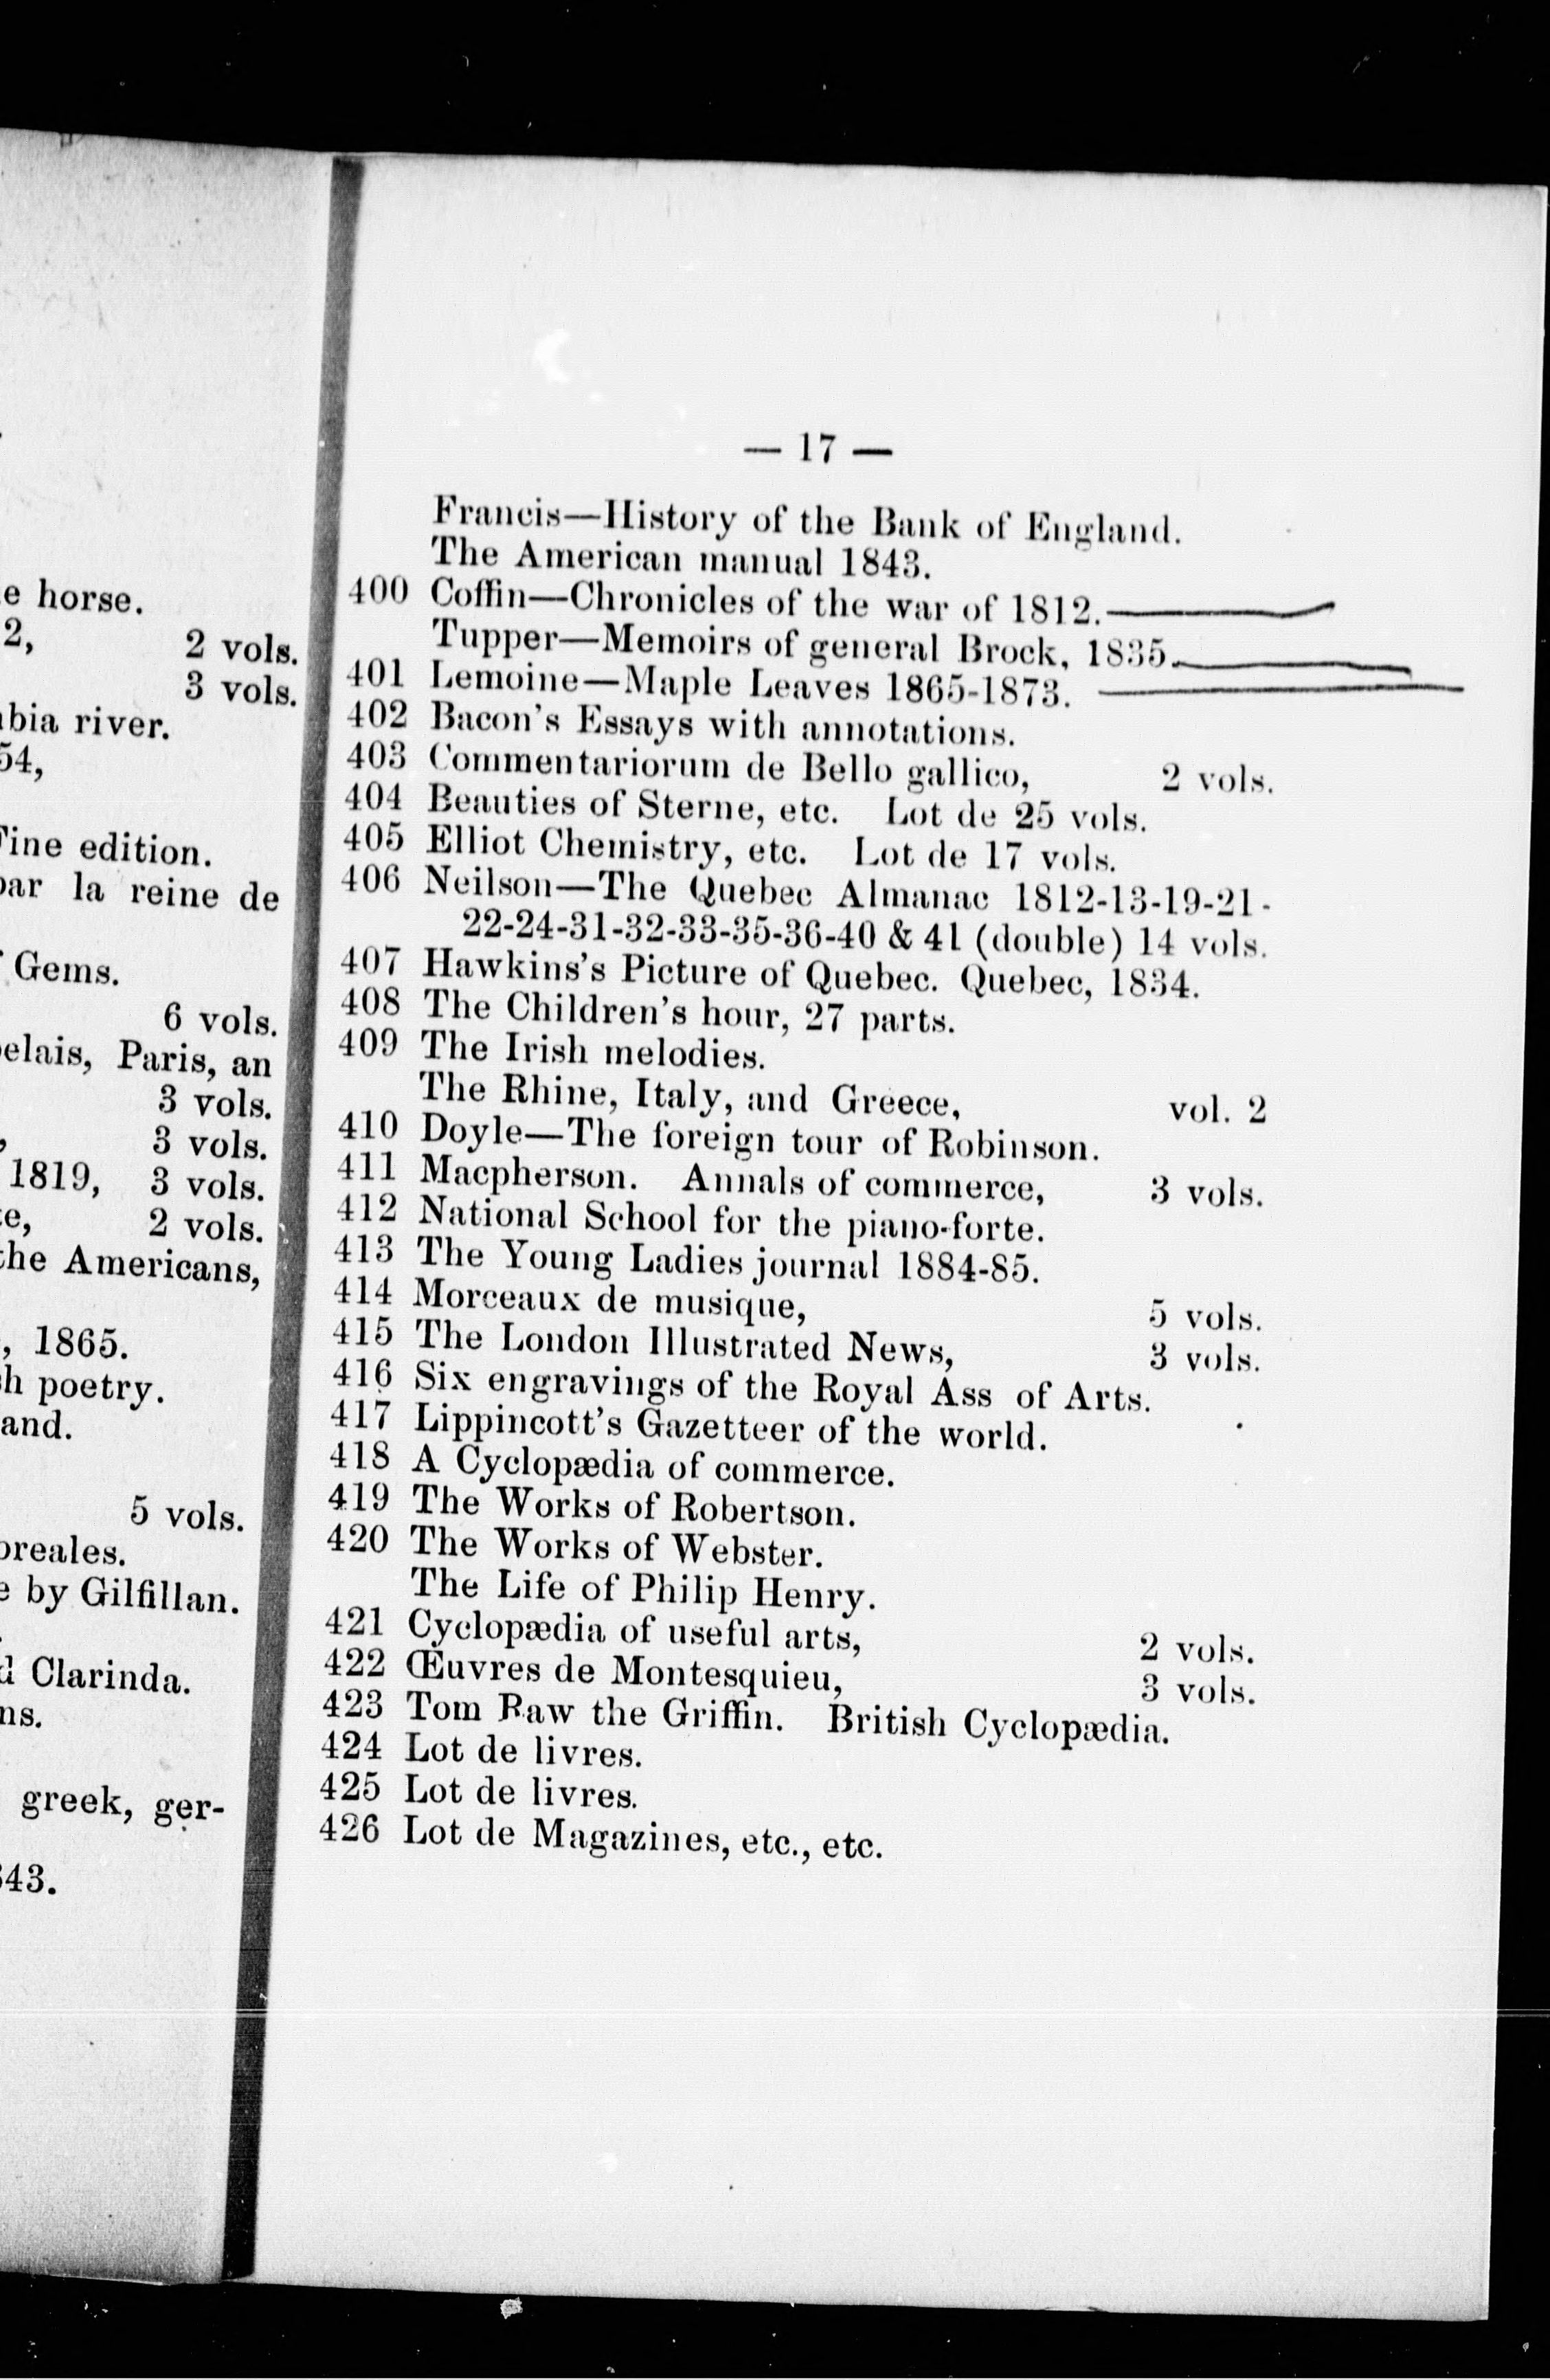 e horse.
2, 2 vols.
3 vols.
bia river.
54,
Fine edition.
par la reine de
Gems.
6 vols.
elais, Paris, an
3 vols.
, 3 vols.
1819, 3 vols.
e, 2 vols.
the Americans,
, 1865.
h poetry.
and.
5 vols.
oreales.
e by Gilfillan.
d Clarinda.
ns.
greek, ger-
43.
— 17 —
Francis—History of the Bank of England.
The American manual 1843.
400 Coffin—Chronicles of the war of 1812.
Tupper—Memoirs of general Brock, 1835.
401 Lemoine—Maple Leaves 1865-1873.
402 Bacon's Essays with annotations.
403 Commentariorum de Bello gallico, 2 vols.
404 Beauties of Sterne, etc. Lot de 25 vols.
405 Elliot Chemistry, etc. Lot de 17 vols.
406 Neilson—The Quebec Almanac 1812-13-19-21-
22-24-31-32-33-35-36-40 & 41 (double) 14 vols.
407 Hawkins's Picture of Quebec. Quebec, 1834.
408 The Children's hour, 27 parts.
409 The Irish melodies.
The Rhine, Italy, and Greece, vol. 2
410 Doyle—The foreign tour of Robinson.
411 Macpherson. Annals of commerce, 3 vols.
412 National School for the piano-forte.
413 The Young Ladies journal 1884-85.
414 Morceaux de musique, 5 vols.
415 The London Illustrated News, 3 vols.
416 Six engravings of the Royal Ass of Arts.
417 Lippincott's Gazetteer of the world.
418 A Cyclopædia of commerce.
419 The Works of Robertson.
420 The Works of Webster.
The Life of Philip Henry.
421 Cyclopædia of useful arts, 2 vols.
422 Œuvres de Montesquieu, 3 vols.
423 Tom Raw the Griffin. British Cyclopædia.
424 Lot de livres.
425 Lot de livres.
426 Lot de Magazines, etc., etc.